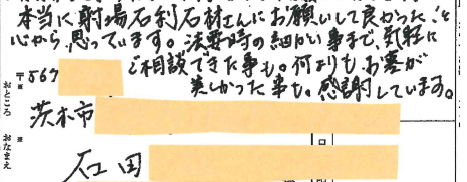 本当に射場石利石材さんにお願いして良かったと
心から思っています。法要時の細かい事まで、気軽に
ご相談できた事も。何よりもお墓が
美しかった事も。感謝しています。
〒567
おところ
茨木市
おなまえ
石田